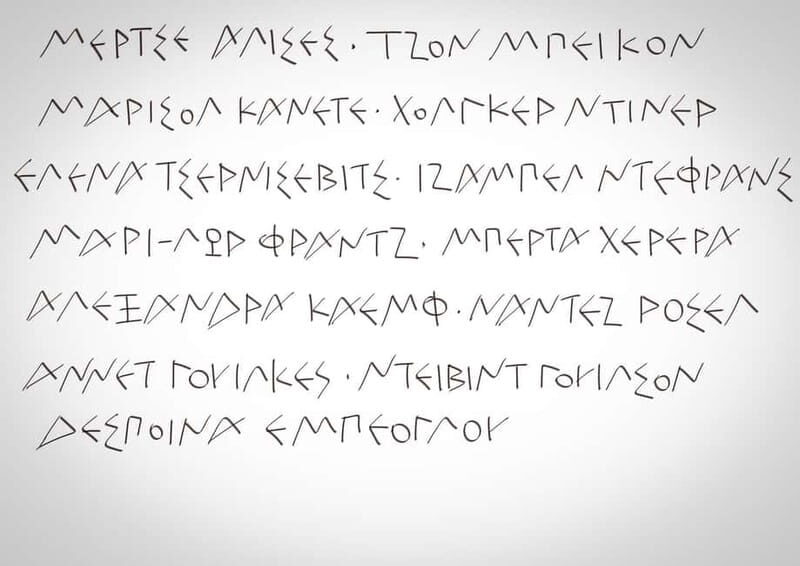 ΜΕΡΤΣΕ ΑΛΙΣΕΣ · ΤΖΟΝ ΜΠΕΙΚΟΝ
ΜΑΡΙΣΟΛ ΚΑΝΕΤΕ · ΧΟΛΓΚΕΡ ΝΤΙΝΕΡ
ΕΛΕΝΑ ΤΣΕΡΝΙΣΕΒΙΤΣ · ΙΖΑΜΠΕΛ ΝΤΕΦΡΑΝΣ
ΜΑΡΙ-ΛΩΡ ΦΡΑΝΤΖ · ΜΠΕΡΤΑ ΧΕΡΕΡΑ
ΑΛΕΞΑΝΔΡΑ ΚΑΕΜΦ · ΝΑΝΤΕΖ ΡΟΣΕΛ
ΑΝΝΕΤ ΓΟΥΙΛΚΕΣ · ΝΤΕΙΒΙΝΤ ΓΟΥΙΛΣΟΝ
ΔΕΣΠΟΙΝΑ ΕΜΠΕΟΓΛΟΥ